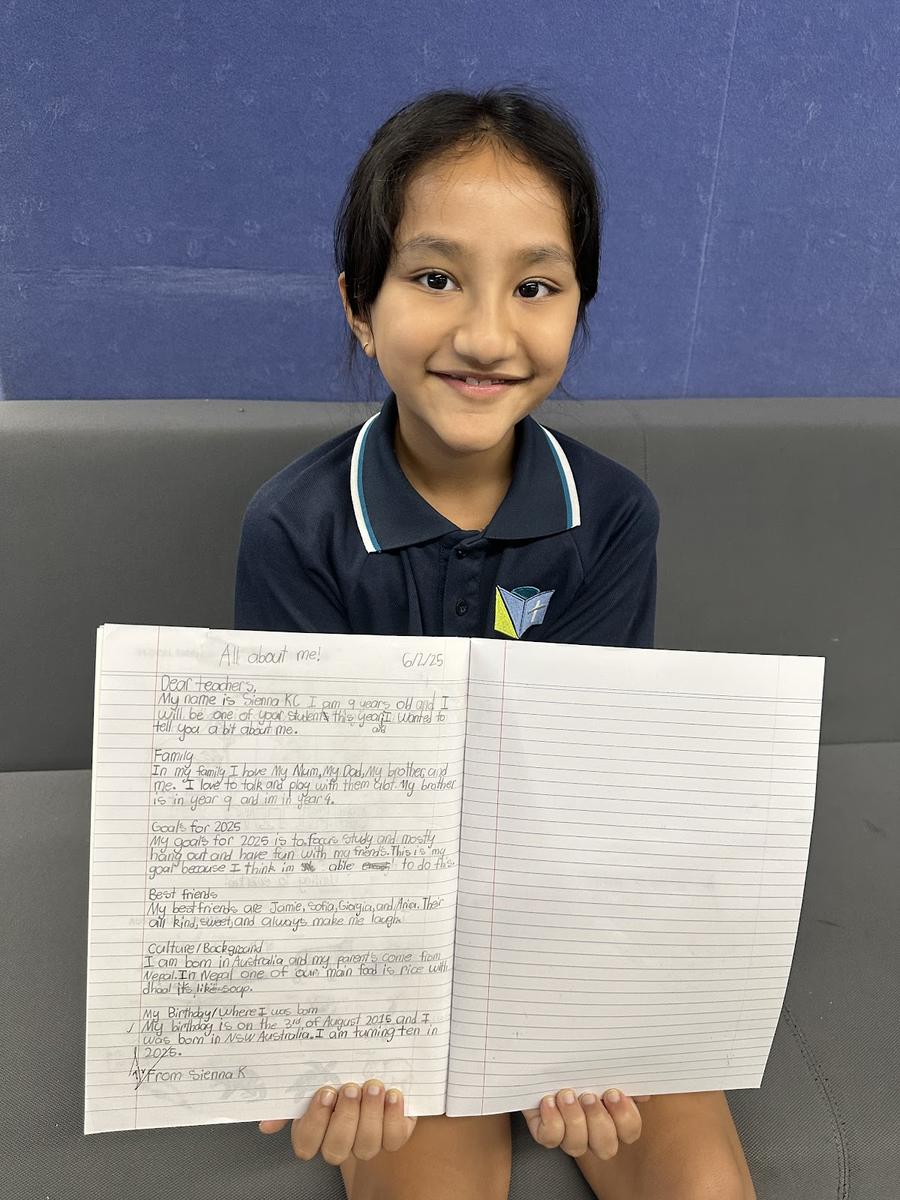 All about me! 6/2/25
Dear teachers,
My name is Sienna KC I am 9 years old and I
will be one of your students this year I wanted to
and
tell you a bit about me.
Family
In my family I have My Mum, My Dad, My brother, and
me. I love to talk and play with them alot. My brother
is in year 9 and im in year 4.
Goals for 2025
My goals for 2025 is to focus study and mostly
hang out and have fun with my friends. This is my
goal because I think im able to do this.
Best friends
My best friends are Jamie, Sofia, Giorgia, and Aria. Their
all kind, sweet, and always make me laugh.
Culture/Background
I am born in Australia and my parents come from
Nepal. In Nepal one of our main food is rice with
dhaal it's like soap.
My Birthday/Where I was born
My birthday is on the 3rd of August 2015 and I
was born in NSW Australia. I am turning ten in
2025.
From Sienna K